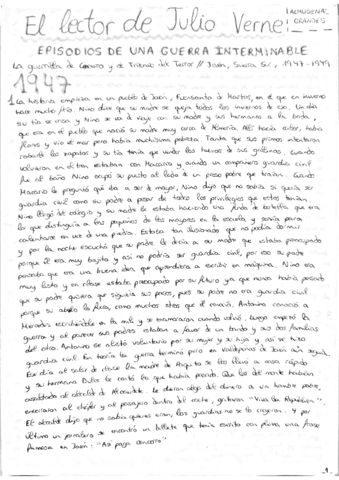 El lector de Julio Verne
ALMUDENA
GRANDES
EPISODIOS DE UNA GUERRA INTERMINABLE
La guerrilla de Cencerro y el Trienio del Terror // Jaén, Sierra Sur, 1947-1949
1947
La historia empieza en un pueblo de Jaén, Fuensanta de Martos, en el que en invierno
hace mucho frío. Nino dice que su madre se queja todos los inviernos de eso. Un día
su tía se casa y Nino se va de viaje con su madre y sus hermanas a la boda,
que era en el pueblo que nació su madre muy cerca de Almería. Allí hacía calor, había
flores y vio el mar pero había muchísima pobreza. Tanta que sus primos intentaron
robarle los zapatos y su tía tenía que vender los huevos de sus gallinas. Cuando
volvieron en el tren, estaban con Macario y cuando un compañero guardia civil
fue al baño Nino ocupó su puesto al lado de un preso pobre que traían. Cuando
Macario le preguntó qué iba a ser de mayor, Nino dijo que no sabía si quería ser
guardia civil como su padre a pesar de todos los privilegios que estos tenían.
Nino llegó del colegio y su madre le estaba haciendo una funda de estrella que era
lo que distinguía a los pequeños de los mayores en la escuela y servía para
calentarse en vez de una piedra. Estaba tan ilusionado que no podía dormir
y por la noche escuchó que su padre le decía a su madre que estaba preocupado
porque él era muy bajito y así no podría ser guardia civil, por eso su padre
pensaba que era una buena idea que aprendiera a escribir en máquina. Nino era
muy listo y en clase estaba preocupado por su futuro ya que nunca había pensado
que su padre quisiera que siguiera sus pasos, pues su padre no era guardia civil
porque su abuelo lo fuera, como muchos otros que él conocía. Antonino conoció a
Mercedes escribiéndole en la mili y se enamoraron cuando volvió. Luego empezó la
guerra y al parecer sus padres estaban a favor de un bando y sus dos familias
del otro. Antonino se alistó voluntario por su mujer y su hija y así se hizo
guardia civil. En teoría la guerra terminó pero en Valdepeñas de Jaén aún seguía.
Ese día al salir de clase la madre de Paquito se los llevó a casa rápido
y su hermana Dulce les contó lo que había pasado. Que los del monte habían
asaltado al alcalde de Alcaudete. Le dieron algo del dinero a un hombre pobre,
encerraron al chófer y al pasajero dentro del coche, gritaron "Viva la República".
El alcalde dijo que no sabía quienes eran, los guardias no se lo creyeron. Y por
último un jornalero se encontró un billete que tenía escrito con pluma una frase
famosa en Jaén: "Así paga Cencerro"
1